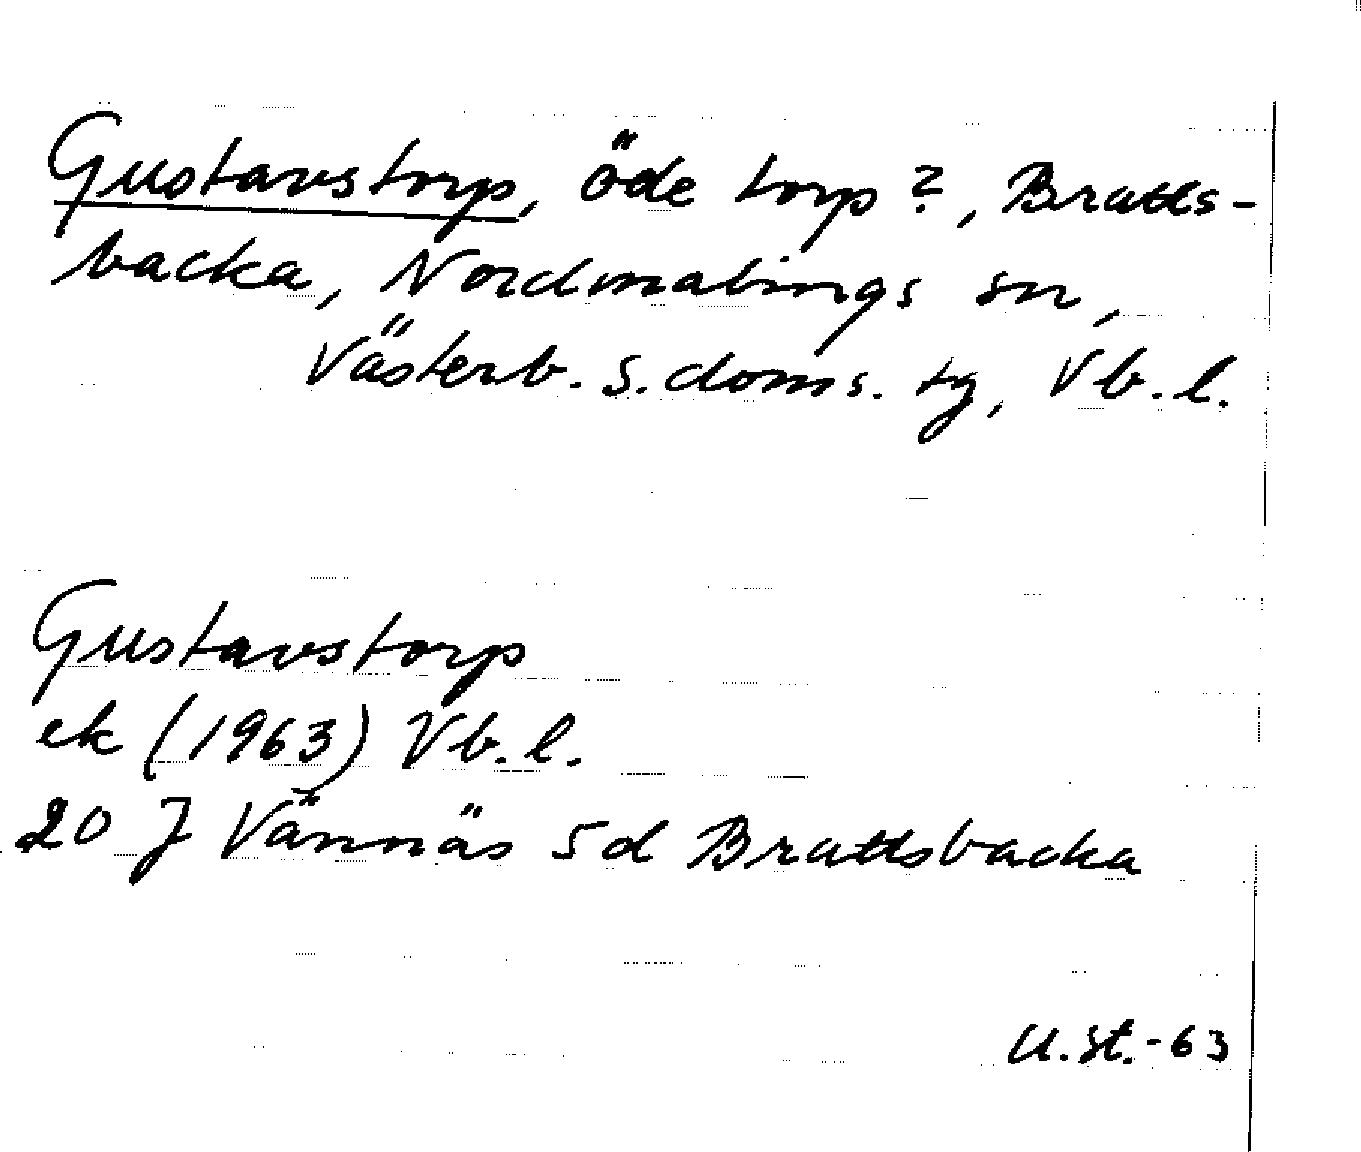 Gustavstorp, öde torp?, Bratts-
backa, Nordmalings sn,
Västerb. s. doms. tg, Vb. l.
Gustavstorp
ek (1963) Vb. l.
20 J Vännäs 5d Brattsbacka
U.St.-63